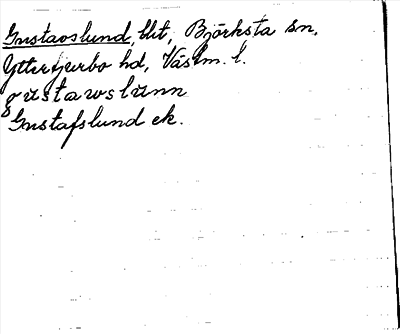 Gustavslund, lht, Björksta sn,
Yttertjurbo hd, Västm. l.
gustawslunn
Gustafslund ek.